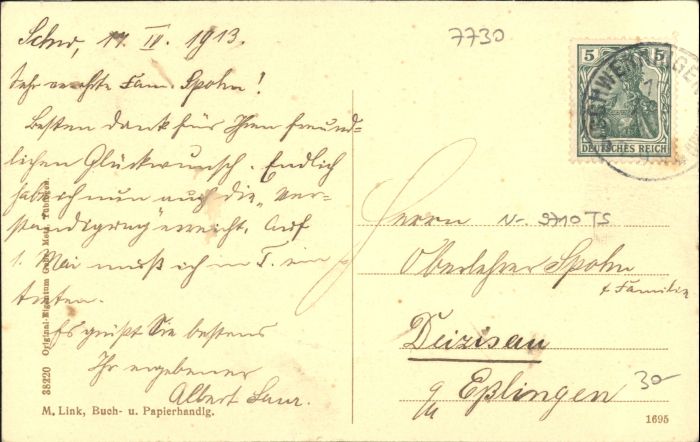 Schw, 17. IV. 1913.
Sehr verehrte Fam. Spohn!
Besten Dank für Ihren freund-
lichen Glückwunsch. Endlich
habe ich nun auch die „Ver-
ständigung" erreicht. Auf
1. Mai muß ich in T. ein
treten.
Es grüßt Sie bestens
Ihr ergebener
Albert
M. Link, Buch- u. Papierhandlg.
38220 Original-Eigentum Metz, Tübingen.
7730
5 5
DEUTSCHES REICH
Herrn
N- 9710 TS
Oberlehrer Spohn
& Familie
Deizisau
Eßlingen
30-
1695